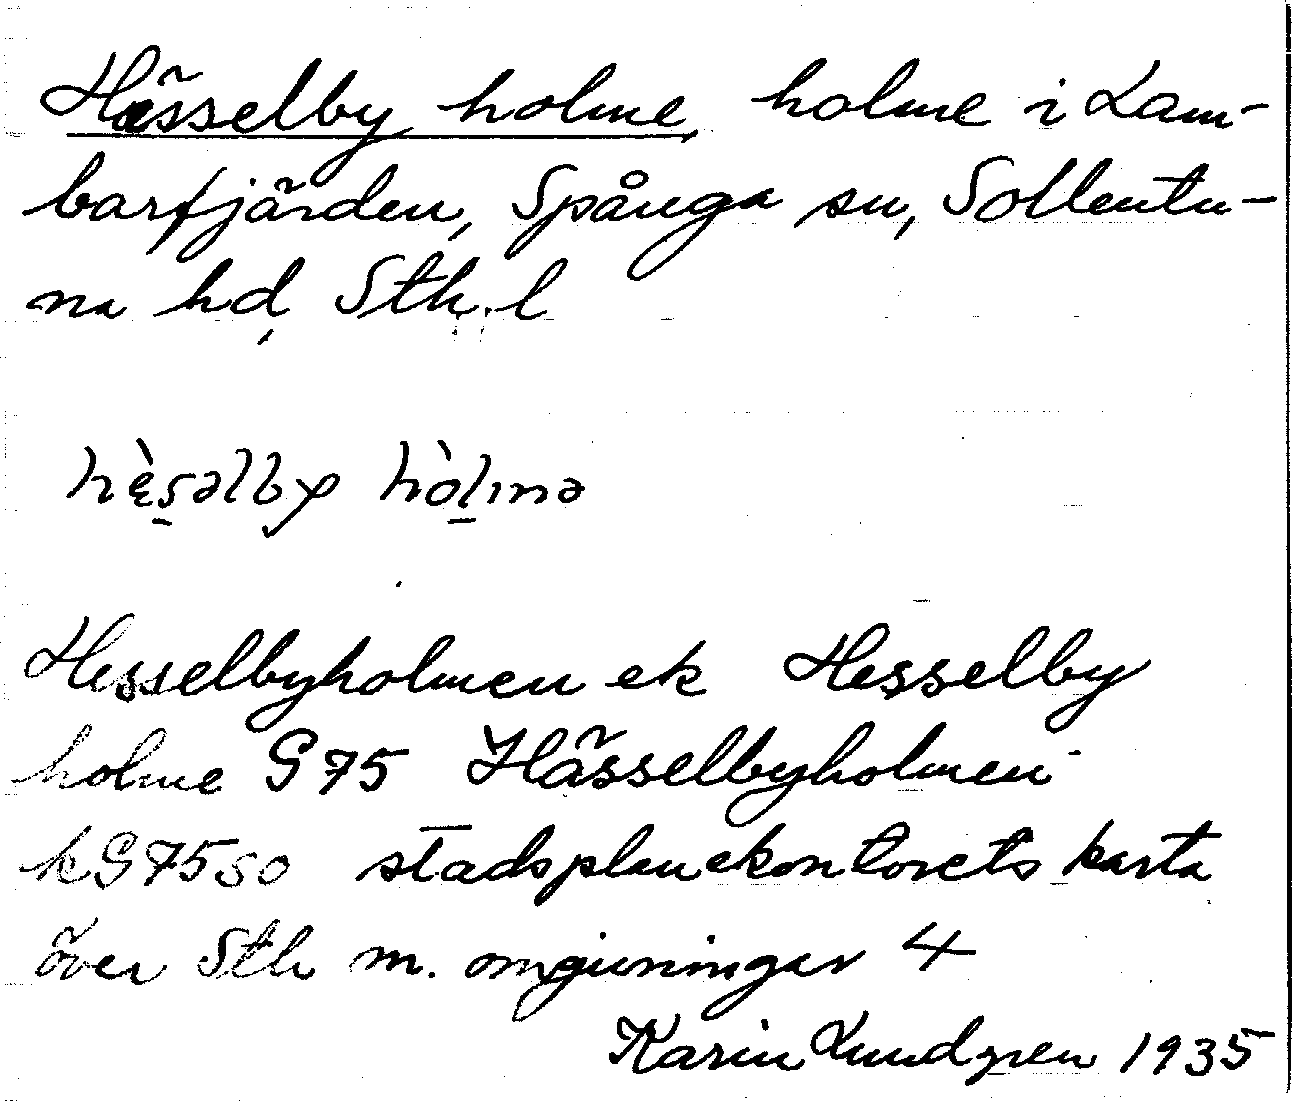 Hässelby holme, holme i Lam-
barfjärden, Spånga sn, Sollentu-
na hd, Sth. l
hɛ̀s̠əlby hòl̠mə
Hesselbyholmen ek Hesselby
holme G 75 Hässelbyholmen
k G 75 SO stadsplanekontorets karta
över Sth m. omgivningar 4
Karin Lundgren 1935